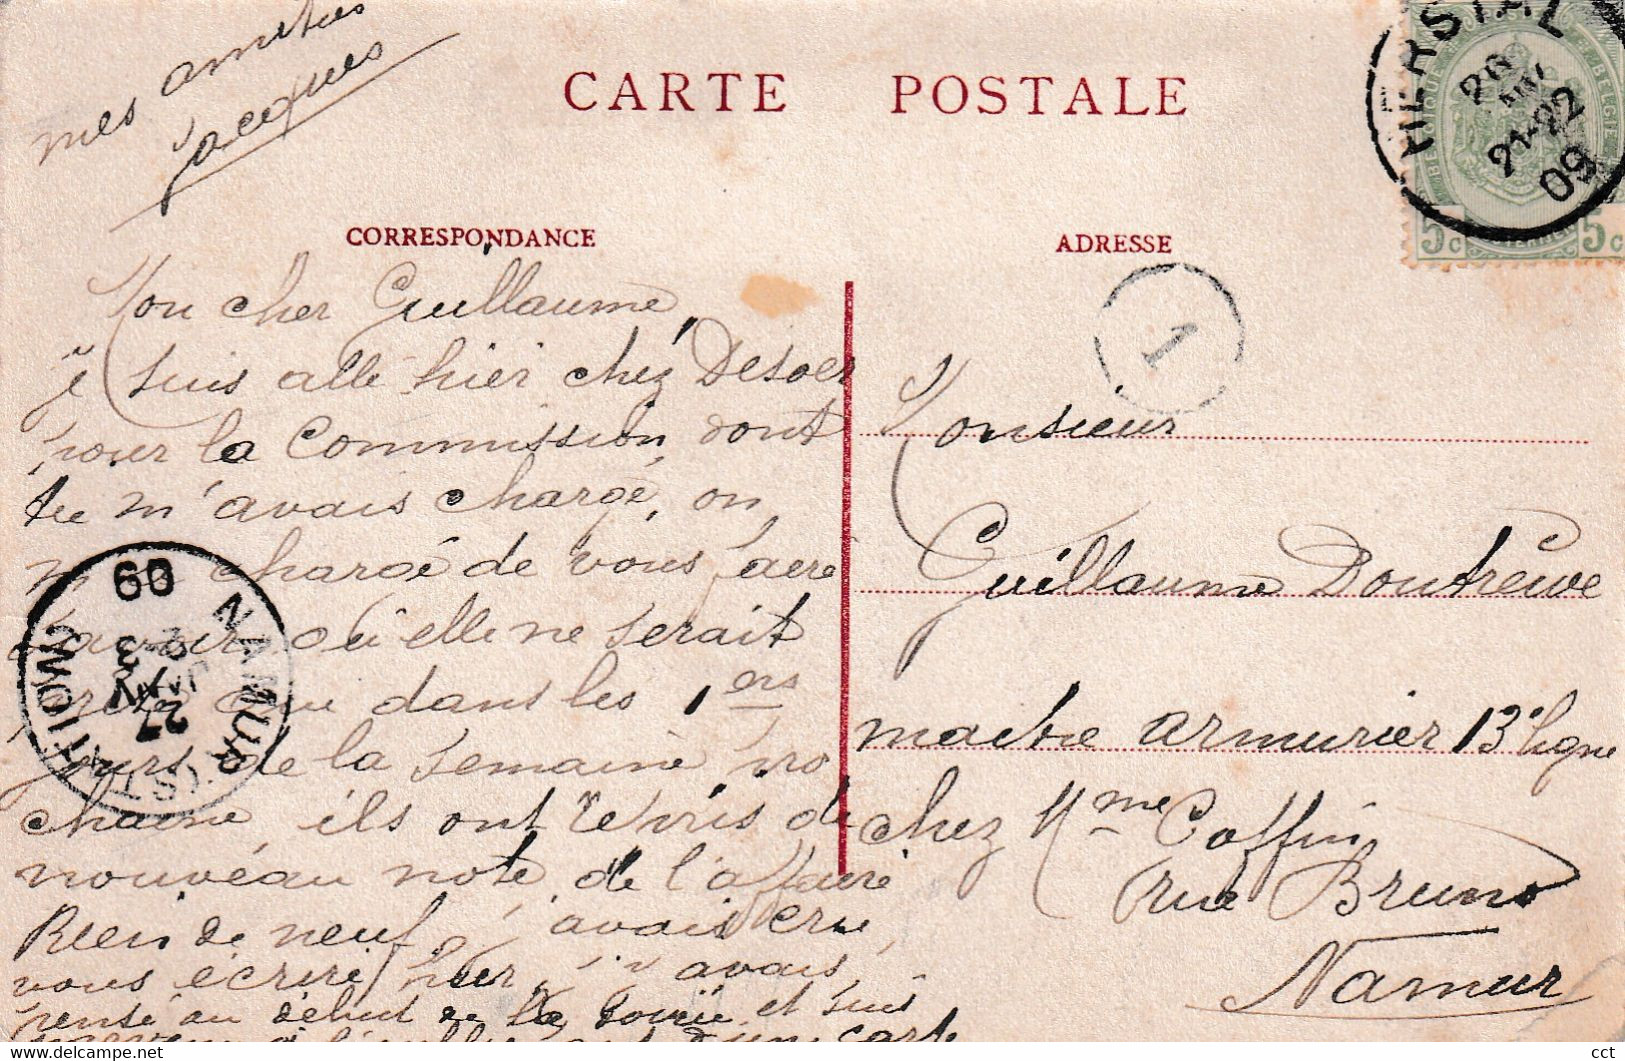 mes amitiés
Jacques
CARTE POSTALE
HERSTAL
26
21-22
09
BELGIQUE
BELGIE
5c
5c
CORRESPONDANCE
ADRESSE
1
Mon cher Guillaume,
je suis allé hier chez Desoer
pour la Commission, dont
tu m'avais chargé, on
m'a chargé de vous faire
savoir, qu'elle ne serait
prête que dans les 1ers
jours de la semaine pro
chaine ils ont repris de
nouveau note de l'affaire
Rien de neuf, j'avais cru
vous écrire hier, j'y avais
pensé au début de la soirée et suis
carte
Monsieur
Guillaume Doutrewe
maitre armurier 13e ligne
chez Mme Coffin
rue Bruno
Namur
NAMUR (STATION)
09
27
cct